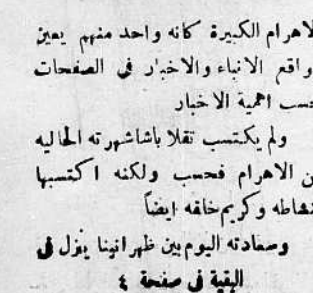 لاهرام الكبيرة كانه واحد منهم يعين
واقع الانباء والاخبار فى الصفحات
حسب اهمية الاخبار
ولم يكتسب تقلا باشا شهرته الحاليه
ن الاهرام فحسب ولكنه اكتسبها
نشاطه وكريم خلقه ايضاً
وسعادته اليوم بين ظهرانينا ينزل فى
البقية فى صفحة ٤